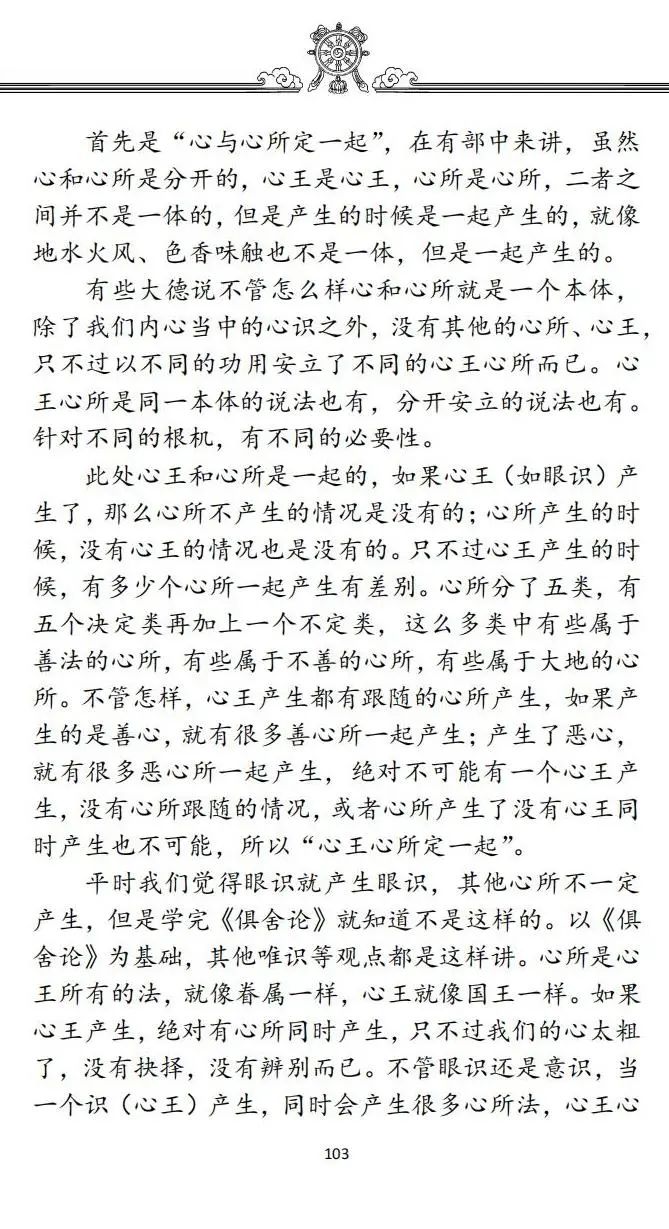 首先是“心与心所定一起”，在有部中来讲，虽然
心和心所是分开的，心王是心王，心所是心所，二者之
间并不是一体的，但是产生的时候是一起产生的，就像
地水火风、色香味触也不是一体，但是一起产生的。
有些大德说不管怎么样心和心所就是一个本体，
除了我们内心当中的心识之外，没有其他的心所、心王，
只不过以不同的功用安立了不同的心王心所而已。心
王心所是同一本体的说法也有，分开安立的说法也有。
针对不同的根机，有不同的必要性。
此处心王和心所是一起的，如果心王（如眼识）产
生了，那么心所不产生的情况是没有的；心所产生的时
候，没有心王的情况也是没有的。只不过心王产生的时
候，有多少个心所一起产生有差别。心所分了五类，有
五个决定类再加上一个不定类，这么多类中有些属于
善法的心所，有些属于不善的心所，有些属于大地的心
所。不管怎样，心王产生都有跟随的心所产生，如果产
生的是善心，就有很多善心所一起产生；产生了恶心，
就有很多恶心所一起产生，绝对不可能有一个心王产
生，没有心所跟随的情况，或者心所产生了没有心王同
时产生也不可能，所以“心王心所定一起”。
平时我们觉得眼识就产生眼识，其他心所不一定
产生，但是学完《俱舍论》就知道不是这样的。以《俱
舍论》为基础，其他唯识等观点都是这样讲。心所是心
王所有的法，就像眷属一样，心王就像国王一样。如果
心王产生，绝对有心所同时产生，只不过我们的心太粗
了，没有抉择，没有辨别而已。不管眼识还是意识，当
一个识（心王）产生，同时会产生很多心所法，心王心
103